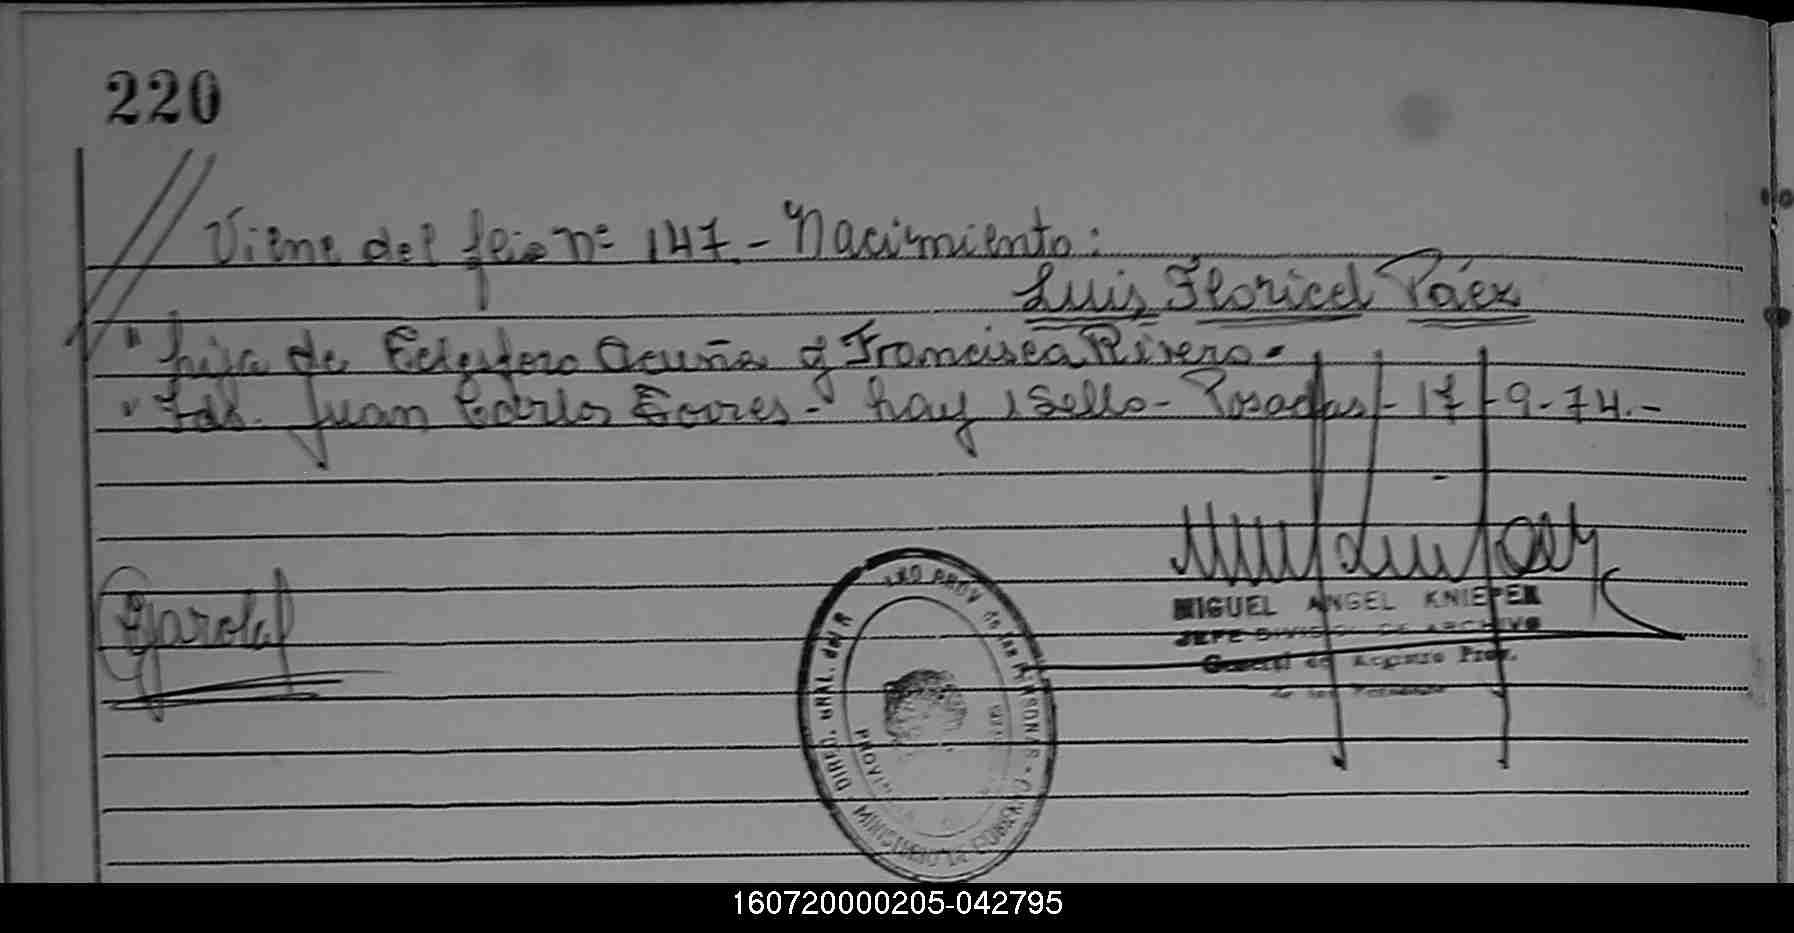 220
Viene del folio nº 147.- Nacimiento:
Luis Floricel Páez
" hija de Acuña y Francisca Rivero.
" Fdo. Juan Carlos - hay 1 Sello - Posadas - 17-9-74.-
MIGUEL ANGEL KNIEPER
JEFE DIVISION DE ARCHIVO
General del Registro Prov.
de las Personas
DIREC. GRAL. del R PROV de las PERSONAS
MINISTERIO DE GOBIERNO
160720000205-042795